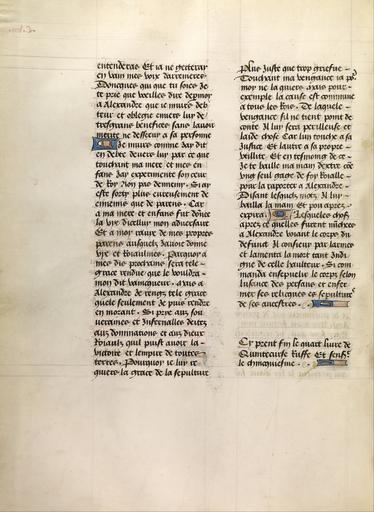 entenderas Et ia ne gecteray
en vain mes voix darrenieres
Doncques qui que tu soies Je
te prie que vueilles dire de par moy
a Alexandre que ie muirs deb
teur et obligie envers luy de
tresgrans benefices sans lavoir
Je muirs comme Jay dit
en debte devers luy par ce que
touchant ma mere et mes en
fans Jay experimente son cueur
de Roy Non pas dennemy. Si ay
este forty plus eureusement de
ennemie que de parens. Car
a ma mere et enfans fut donee
la vie dicelluy mon adversaire
Et a moy ostee de mes propres
parens ausquels Javoie donne
vye et Roiaulmes. Parquoy a
mes dis prochains sera tele
grace rendue que le vouldra
mon dit vainqueur. Mais a
Alexandre Je rengs tele grace
quele seulement Je puis rendre
en morant. Si prie aux sou
veraines et Infernalles deitez
aux dominations et aux dieux
Roiaulx quil puist avoir la
victoire et lempire de toutes
terres. Pourquoy ie luy re
quiers la grace de la sepulture
Plus Juste que trop griefve
Touchant ma vengance Ja por
moy ne la quiers. Mais pour
exemple la cause est commune
a tous les Rois. De laquele
vengance sil ne tient point de
conte Il luy sera perilleuse et
laide chose Car lun touche a sa
Justice. Et lautre a sa propre
utilite. Et en tesmoing de ce
Je te baille ma main dextre comme
ung seul gage de foy Roialle
pour la raporter a Alexandre
Disant lesquels mots. Il luy
bailla la main Et pou apres
expira. Lesquelles choses
apres ce quelles furent nuncees
a Alexandre voiant le corps du
defunct Il confuse par larmes
et lamenta la mort tant Indi
gne de celle haultesse. Si com
manda ensepvelir le corps selon
lusance des persans et enfer
mer ses reliques es sepultures
de ses ancestres.
Cy prent fin le quart livre de
Quinte curse Ruffe Et sensuit
le chincquiesme.